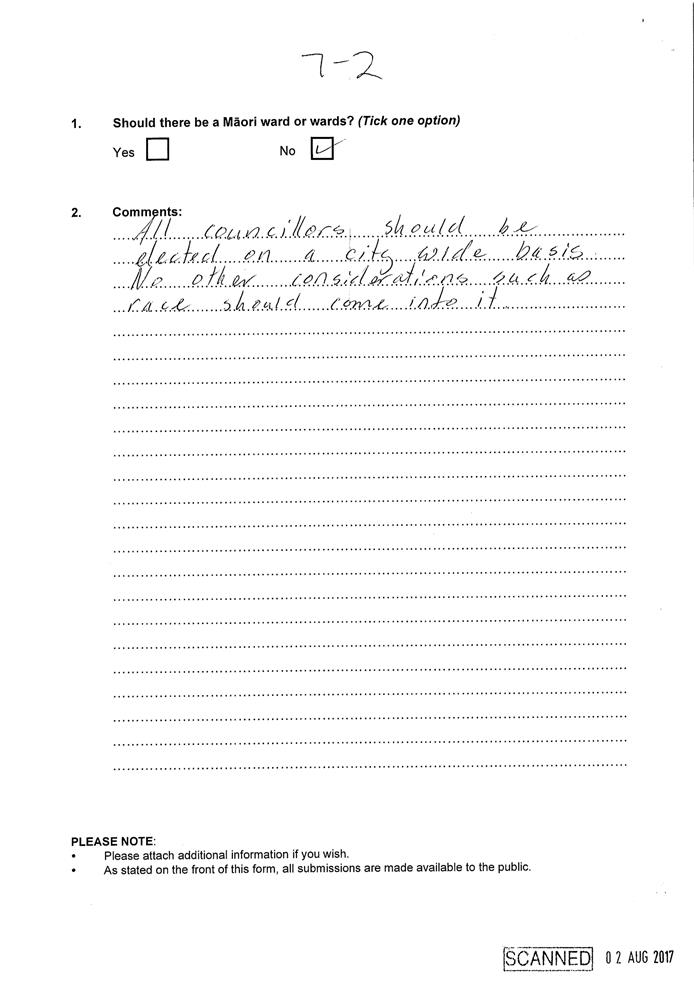 7-2
1. Should there be a Māori ward or wards? (Tick one option)
Yes No
2. Comments:
All councillors should be
elected on a city wide basis
No other considerations such as
race should come into it
PLEASE NOTE:
• Please attach additional information if you wish.
• As stated on the front of this form, all submissions are made available to the public.
SCANNED 02 AUG 2017